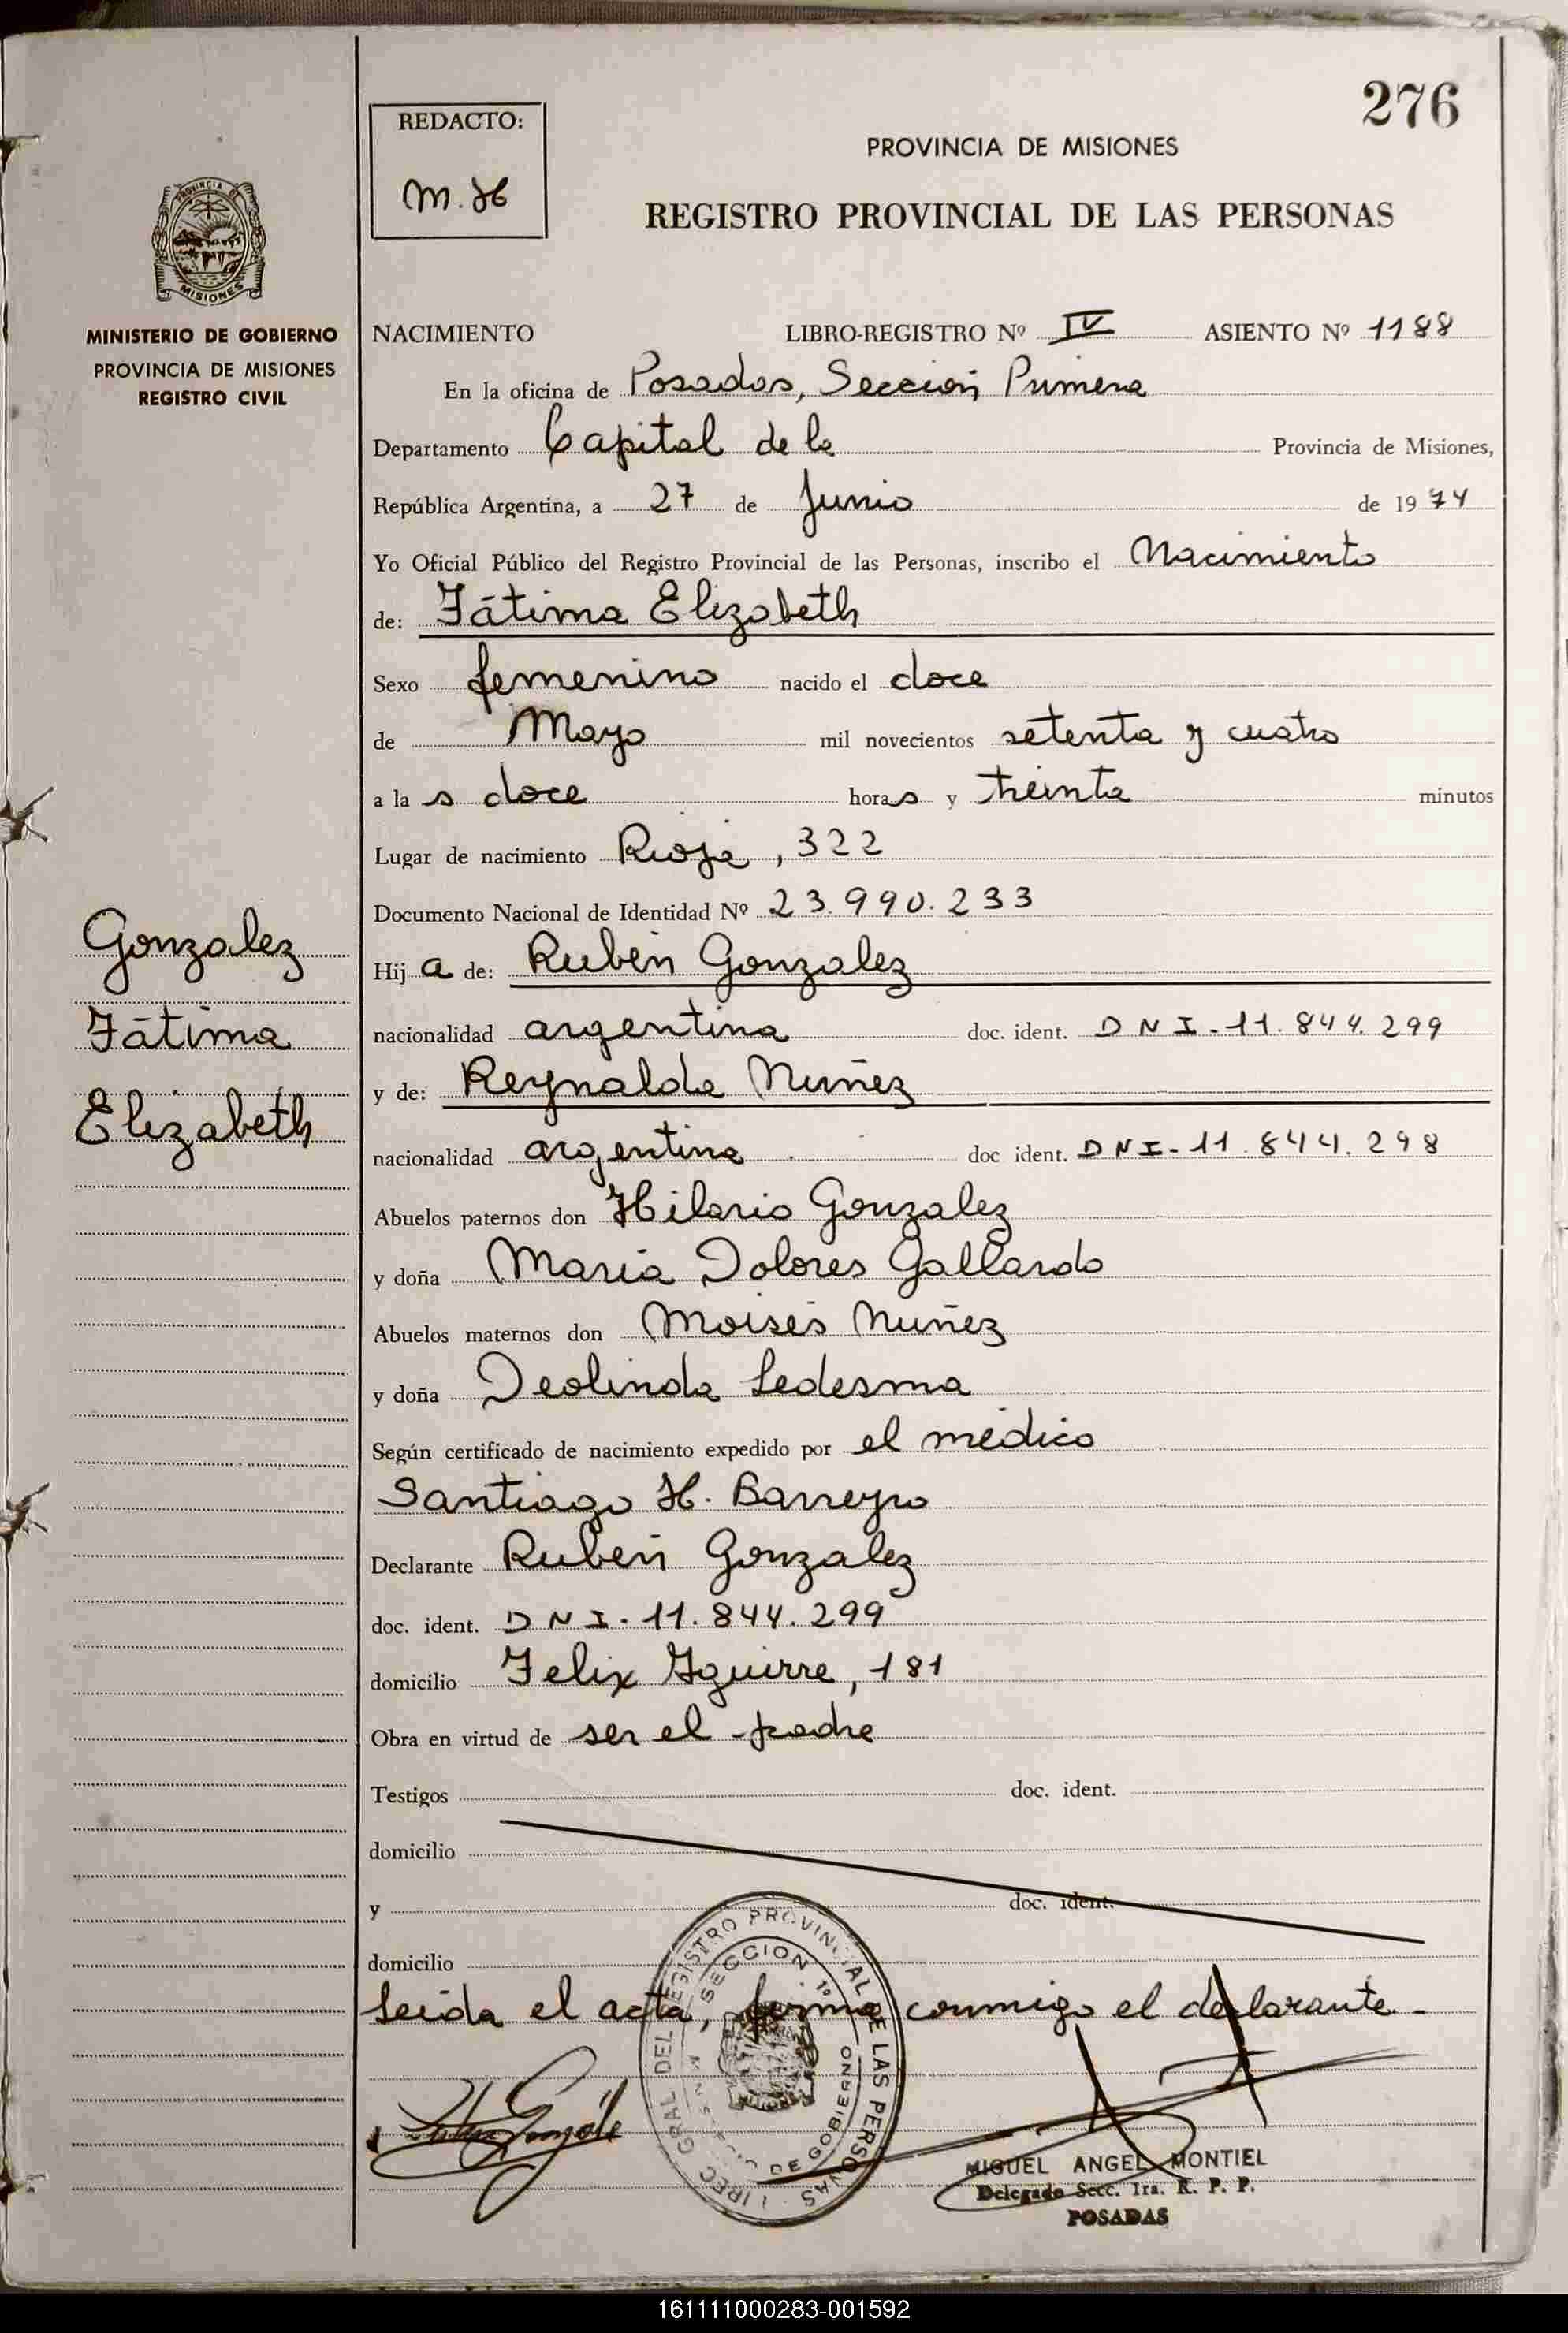 276
REDACTO:
M. H
PROVINCIA DE MISIONES
REGISTRO PROVINCIAL DE LAS PERSONAS
PROVINCIA DE
MISIONES
MINISTERIO DE GOBIERNO
PROVINCIA DE MISIONES
REGISTRO CIVIL
NACIMIENTO LIBRO-REGISTRO Nº IV ASIENTO Nº 1188
En la oficina de Posadas, Sección Primera
Departamento Capital de la Provincia de Misiones,
República Argentina, a 27 de Junio de 1974
Yo Oficial Público del Registro Provincial de las Personas, inscribo el Nacimiento
de: Fátima Elizabeth
Sexo femenino nacido el doce
de Mayo mil novecientos setenta y cuatro
a la s doce horas y treinta minutos
Lugar de nacimiento Rioja, 322
Documento Nacional de Identidad Nº 23.990.233
Gonzalez
Fátima
Elizabeth
Hij a de: Rubén Gonzalez
nacionalidad argentina doc. ident. DNI-11.844.299
y de: Reynalda Nuñez
nacionalidad argentina doc ident. DNI-11.844.298
Abuelos paternos don Hilario Gonzalez
y doña María Dolores Gallardo
Abuelos maternos don Moisés Nuñez
y doña Deolinda Ledesma
Según certificado de nacimiento expedido por el médico
Santiago H. Barreyro
Declarante Rubén Gonzalez
doc. ident. DNI-11.844.299
domicilio Felix Aguirre, 181
Obra en virtud de ser el padre
Testigos doc. ident.
domicilio
y doc. ident.
domicilio
Leída el acta, firma conmigo el declarante.-
DIREC. GRAL. DEL REGISTRO PROVINCIAL DE LAS PERSONAS
SECCION 1º
DE GOBIERNO
MIGUEL ANGEL MONTIEL
Delegado Secc. 1ra. R. P. P.
POSADAS
161111000283-001592